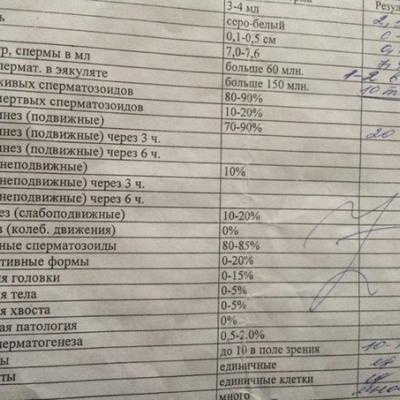 3-4 мл
серо-белый
0,1-0,5 см
р, спермы в мл 7,0-7,6
пермат. в эякуляте больше 60 млн. 1-2 в
живых сперматозоидов больше 150 млн.
мертвых сперматозоидов 80-90%
инез (подвижные) 10-20%
инез (подвижные) через 3 ч. 70-90% 20
инез (подвижные) через 6 ч.
неподвижные) 10%
неподвижные) через 3 ч.
неподвижные) через 6 ч.
ез (слабоподвижные) 10-20%
з (колеб. движения) 0%
ные сперматозоиды 80-85%
тивные формы 0-20%
я головки 0-15%
я тела 0-5%
я хвоста 0-5%
ая патология 0%
перматогенеза 0,5-2.0%
ы до 10 в поле зрения 10-
ты единичные
единичные клетки
много